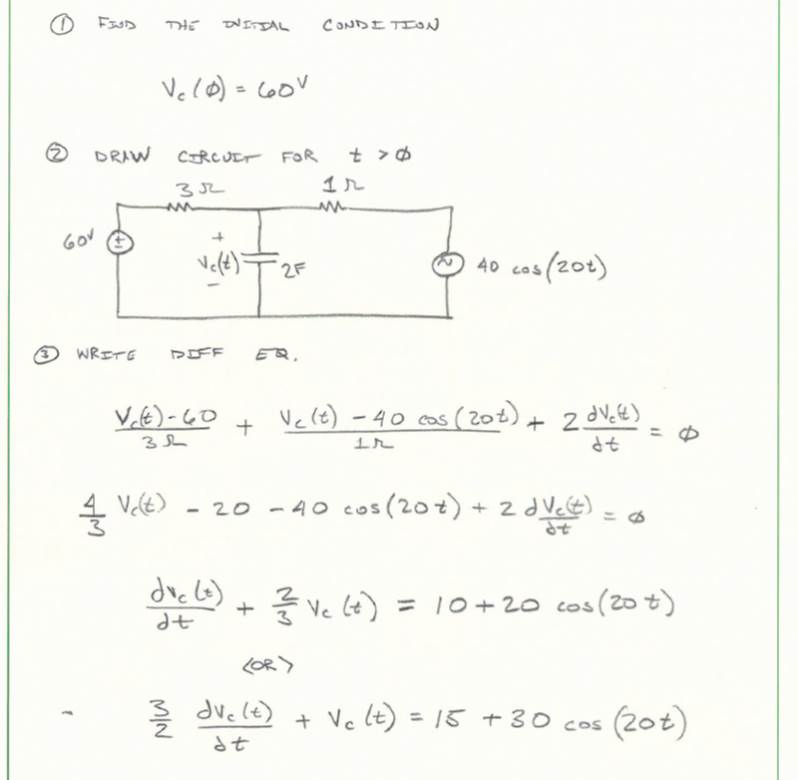 ① FIND THE INITIAL CONDITION
Vc(∅) = 60V
② DRAW CIRCUIT FOR t > ∅
3Ω 1Ω
60V ± + Vc(t) − 2F 40 cos(20t)
③ WRITE DIFF EQ.
(Vc(t) - 60)/3Ω + (Vc(t) - 40 cos(20t))/1Ω + 2 dVc(t)/dt = ∅
4/3 Vc(t) - 20 - 40 cos(20t) + 2 dVc(t)/dt = ∅
dVc(t)/dt + 2/3 Vc(t) = 10 + 20 cos(20t)
<OR>
3/2 dVc(t)/dt + Vc(t) = 15 + 30 cos(20t)